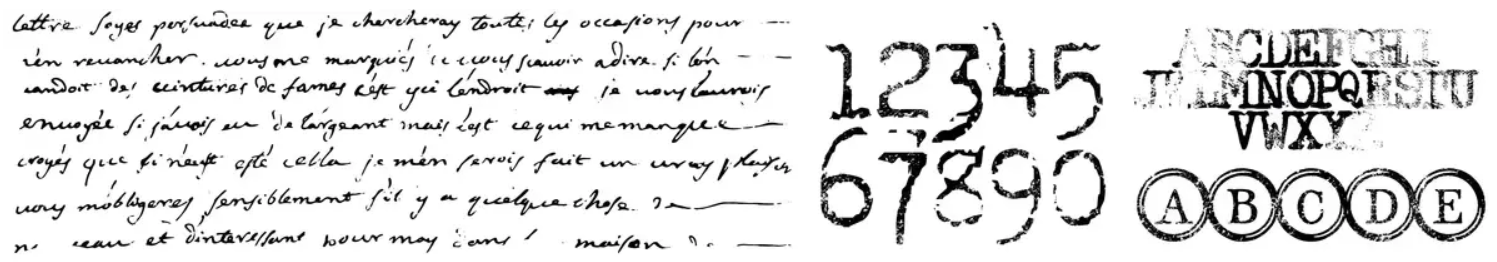 lettre soyes persuadee que je chercheray toutes les occasions pour
m'en revancher. vous me marqués si vous sçavoir adire si l'on
vandoit des ceintures de fames c'est qui l'endroit je vous l'aurois
envoyée si j'avois eu de l'argeant mais c'est ce qui me manque
croyés que si n'eust esté cella je m'en serois fait un vray plaisir
vous m'obligeres sensiblement s'il y a quelque chose de
eau et d'interessant pour moy dans maison de
12345
67890
ABCDEFGHI
JKLMNOPQRSTU
VWXYZ
A B C D E